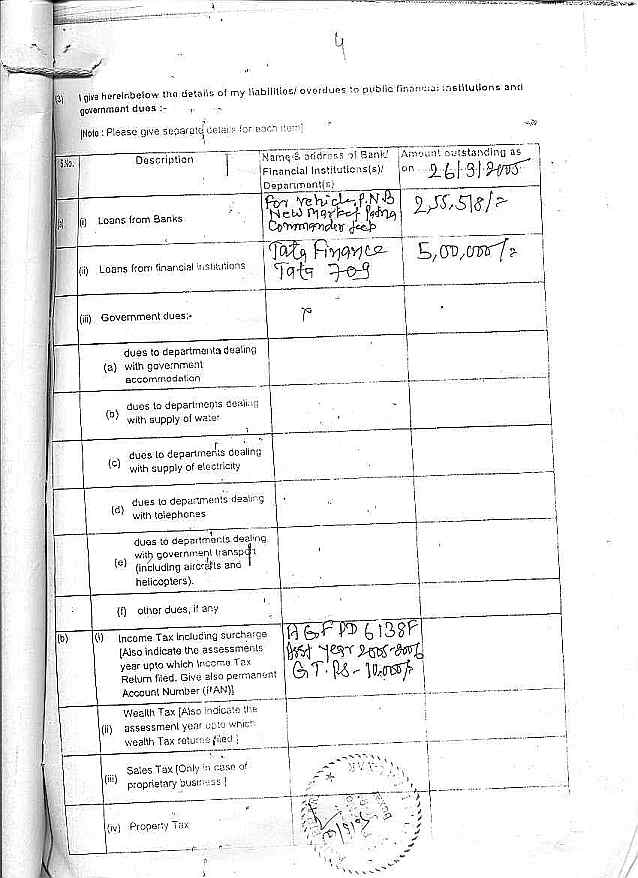 4
(3) I give hereinbelow the details of my liabilities/ overdues to public financial institutions and
government dues :-
[Note : Please give separate details for each item]
S.No. Description Name & address of Bank/ Financial Institutions(s)/ Department(s) Amount outstanding as on 26/9/2005
(a) (i) Loans from Banks For vehicle, P.N.B 2,55,518/=
New Market Patna
Commander Jeep
(ii) Loans from financial institutions Tata Finance 5,00,000/=
Tata 709
(iii) Government dues:-
dues to departments dealing
(a) with government
accommodation
(b) dues to departments dealing
with supply of water
(c) dues to departments dealing
with supply of electricity
(d) dues to departments dealing
with telephones
dues to departments dealing
(e) with government transport
(including aircrafts and
helicopters).
(f) other dues, if any
(b) (i) Income Tax including surcharge AGFPD6138F
[Also indicate the assessments Year 2005-2006
year upto which Income Tax G.T. RS- 10,000/-
Return filed. Give also permanent
Account Number (PAN)]
Wealth Tax [Also indicate the
(ii) assessment year upto which
wealth Tax returns filed ]
(iii) Sales Tax [Only in case of
proprietary business ]
(iv) Property Tax